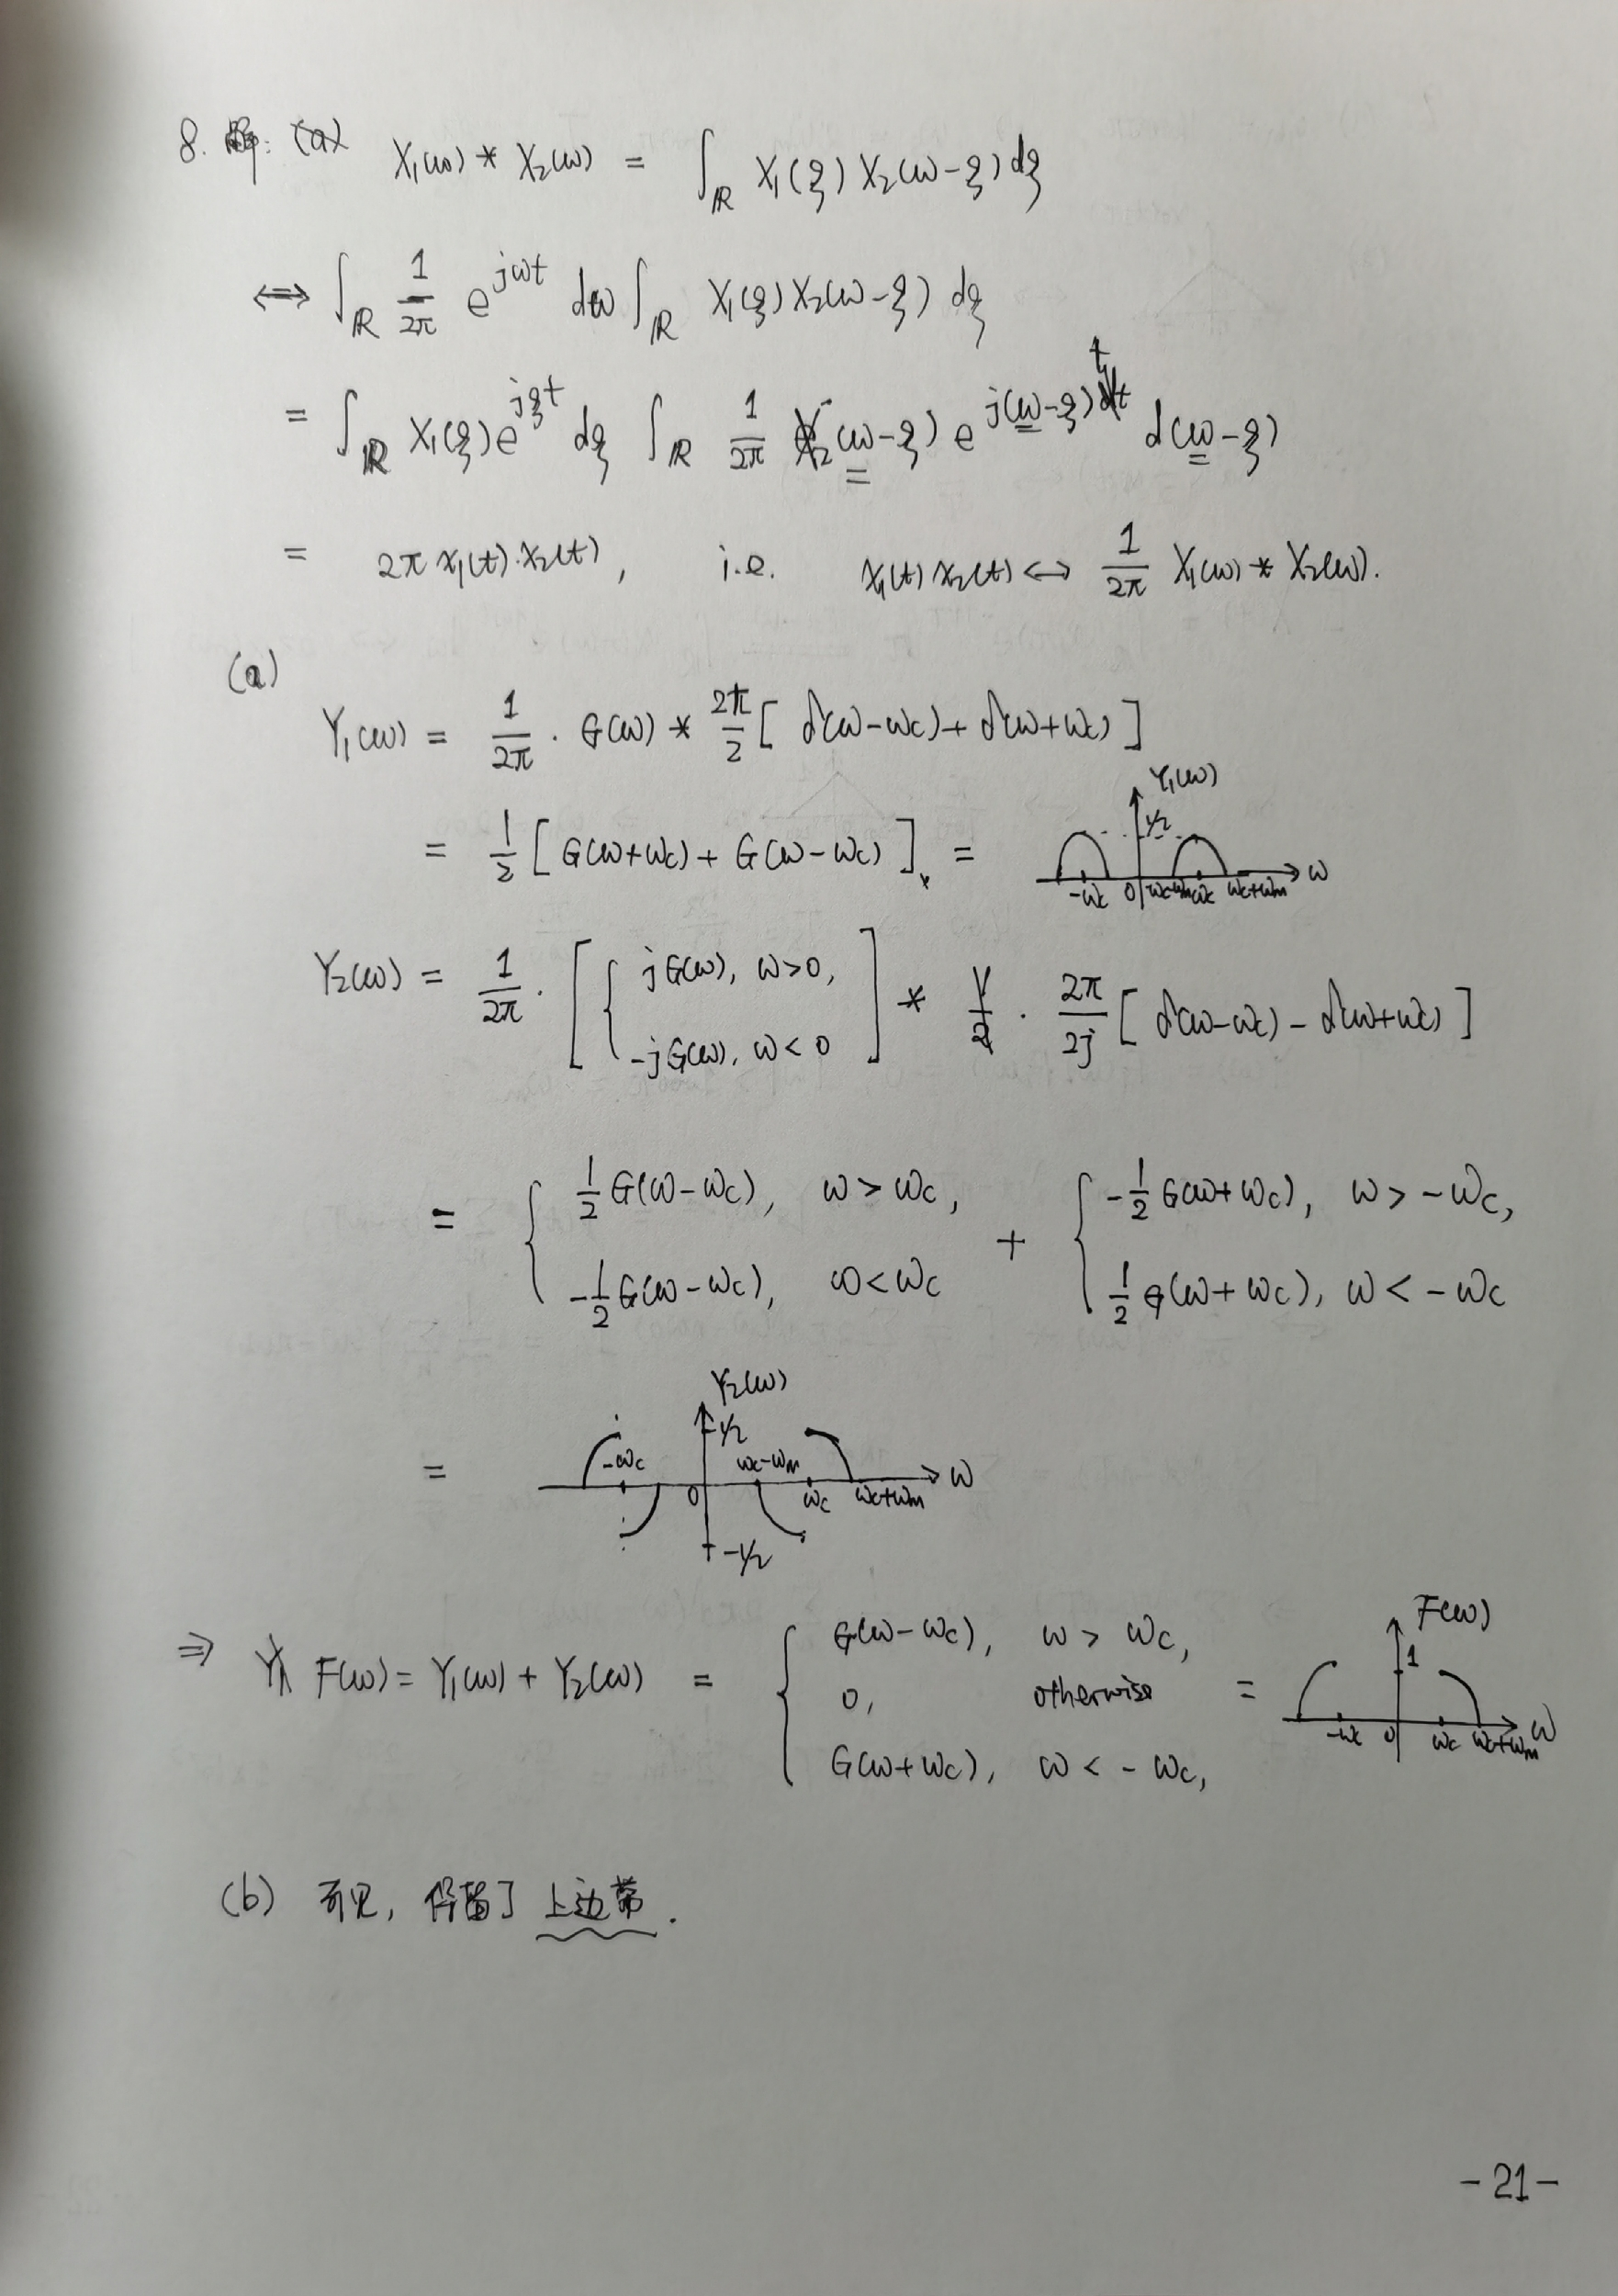 8. 解: (a) X₁(ω) * X₂(ω) = ∫_ℝ X₁(ξ) X₂(ω-ξ) dξ
⟺ ∫_ℝ 1/2π e^{jωt} dω ∫_ℝ X₁(ξ) X₂(ω-ξ) dξ
= ∫_ℝ X₁(ξ) e^{jξt} dξ ∫_ℝ 1/2π X₂(ω-ξ) e^{j(ω-ξ)t} d(ω-ξ)
= 2π x₁(t)·x₂(t), i.e. x₁(t) x₂(t) ⟺ 1/2π X₁(ω) * X₂(ω).
(a)
Y₁(ω) = 1/2π · G(ω) * 2π/2 [ δ(ω-ωc) + δ(ω+ωc) ]
= 1/2 [ G(ω+ωc) + G(ω-ωc) ], =
Y₁(ω)
1/2
-ωc 0 ωc-ωm ωc ωc+ωm ω
Y₂(ω) = 1/2π · [ { jG(ω), ω>0, -jG(ω), ω<0 ] * 2π/2j [ δ(ω-ωc) - δ(ω+ωc) ]
= { 1/2 G(ω-ωc), ω>ωc, -1/2 G(ω-ωc), ω<ωc + { -1/2 G(ω+ωc), ω>-ωc, 1/2 G(ω+ωc), ω<-ωc
Y₂(ω)
1/2
-ωc ωc-ωm
= 0 ωc ωc+ωm ω
-1/2
⇒ F(ω) = Y₁(ω) + Y₂(ω) = { G(ω-ωc), ω>ωc, 0, otherwise G(ω+ωc), ω<-ωc, =
F(ω)
1
-ωc 0 ωc ωc+ωm ω
(b) 可见, 保留了上边带.
-21-